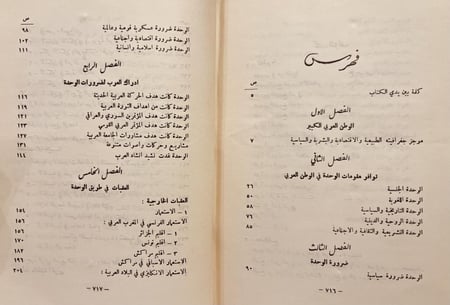 فهرس
ص
كلمة بين يدي الكتاب ٥
الفصل الاول
الوطن العربي الكبير
موجز جغرافيته الطبيعية والاقتصادية والبشرية والسياسية ٧
الفصل الثاني
توافر مقومات الوحدة في الوطن العربي
الوحدة الجنسية ٢٦
الوحدة اللغوية ٥٠
الوحدة التاريخية والسياسية ٥٨
الوحدة الروحية والدينية ٧٦
الوحدة التشريعية والثقافية والاجتماعية ٨٥
الفصل الثالث
ضرورة الوحدة
الوحدة ضرورة سياسية ٩٠
— ٧١٦ —
ص
الوحدة ضرورة عسكرية قومية وعالمية ٩٨
الوحدة ضرورة اقتصادية واجتماعية ١٠٢
الوحدة ضرورة اسلامية وانسانية ١١١
الفصل الرابع
ادراك العرب لضرورات الوحدة
الوحدة كانت هدف الحركة العربية الحديثة ١١٦
الوحدة كانت من اهداف الثورة العربية
الوحدة كانت هدف المؤتمرين السوري والعراقي
الوحدة كانت هدف المؤتمر العربي القومي
الوحدة كانت هدف مشاورات الجامعة العربية
مشاريع وحركات واصوات متنوعة
الوحدة غدت نشيد انشاء العرب ١٤٤
الفصل الخامس
العقبات في طريق الوحدة
العقبات الخارجية :
١ - الاستعمار ١٥٤
الاستعمار الفرنسي في المغرب العربي : ١٥٦
١ - اقليم الجزائر ١٥٦
٢ - اقليم تونس ١٧٠
٣ - اقليم مراكش ١٨٢
الاستعمار الاسباني في مراكش ١٩٦
الاستعمار الانكليزي في البلاد العربية ٢٠٤
— ٧١٧ —